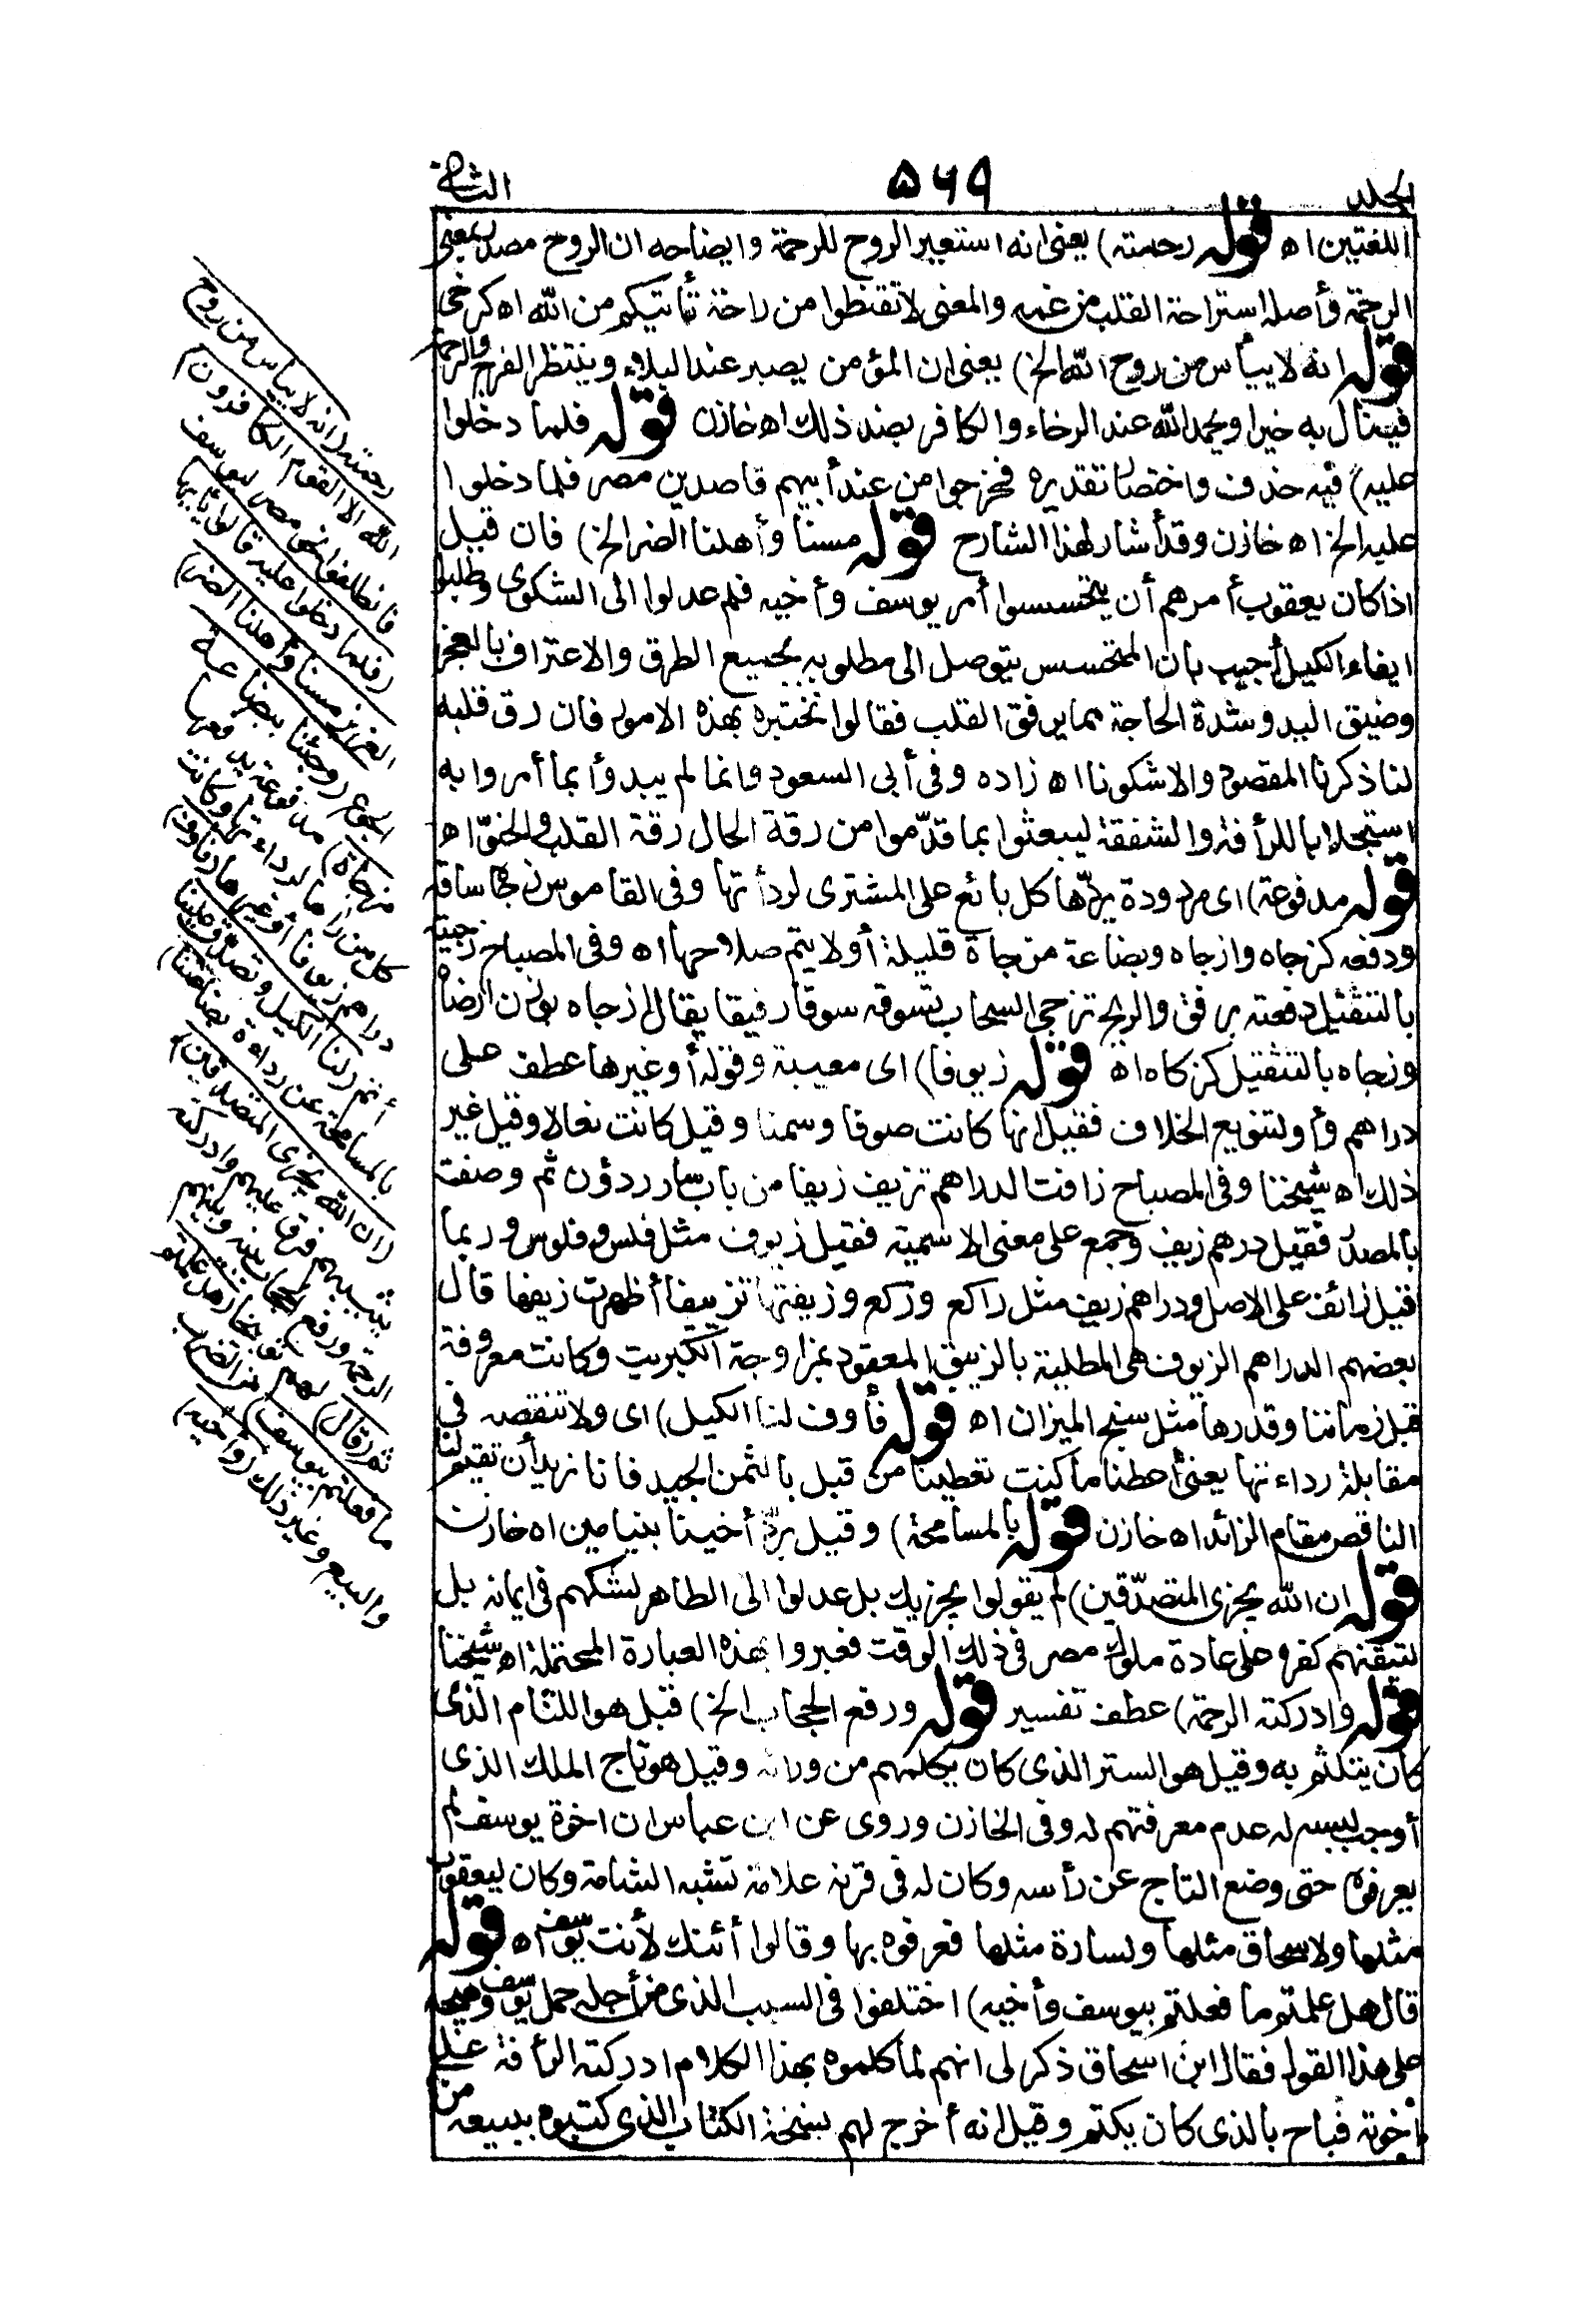 الجلد ٥٦٩ الثانى
اللغتين اه قوله رحمته) يعنى انه استعير الروح للرحمة وايضاحه ان الروح مصدر بمعنى
الرحمة وأصله استراحة القلب من غمه والمعنى لا تقنطوا من راحة تأتيكم من الله اه كرخى
قوله انه لا ييأس من روح الله الخ) يعنى ان المؤمن يصبر عند البلاء وينتظر الفرج والرحمة
فينال به خيرا ويحمد الله عند الرخاء والكافر بضد ذلك اه خازن قوله فلما دخلوا
عليه) فيه حذف واختصار تقديره فخرجوا من عند أبيهم قاصدين مصر فلما دخلوا
عليه الخ اه خازن وقد أشار لهذا الشارح قوله مسنا وأهلنا الضر الخ) فان قيل
اذا كان يعقوب أمرهم أن يتحسسوا أمر يوسف وأخيه فلم عدلوا الى الشكوى وطلبوا
ايفاء الكيل أجيب بان المتحسس يتوصل الى مطلوبه بجميع الطرق والاعتراف بالعجز
وضيق اليد وشدة الحاجة مما يرقق القلب فقالوا نختبره بهذه الامور فان رق قلبه
لنا ذكرنا المقصود والا شكونا اه زاده وفى أبى السعود وانما لم يبدؤا بما أمروا به
استجلابا للرأفة والشفقة ليبعثوا بما قدّموا من رقة الحال رقة القلب والحنوّ اه
قوله مدفوعة) اى مردودة يردّها كل بائع على المشترى لرداءتها وفى القاموس زجاه ساقه
ودفعه كزجاه وازجاه وبضاعة مزجاة قليلة أو لا يتم صلاحها اه وفى المصباح زجيته
بالتثقيل دفعته برفق والريح تزجى السحاب تسوقه سوقا رفيقا يقال ازجاه بوزن ارضاه
وزجاه بالتثقيل كزكاه اه قوله زيوفا) اى معيبة وقوله أو غيرها عطف على
دراهم وأو لتنويع الخلاف فقيل انها كانت صوفا وسمنا وقيل كانت نعالا وقيل غير
ذلك اه شيخنا وفى المصباح زافت الدراهم تزيف زيفا من باب سار ردؤت ثم وصفت
بالمصدر فقيل درهم زيف وجمع على معنى الاسمية فقيل زيوف مثل فلس وفلوس وربما
قيل زائف على الاصل ودراهم زيف مثل راكع وركع وزيفتها تزييفا أظهرت زيفها قال
بعضهم الدراهم الزيوف هى المطلية بالزيبق المعقود بمزاوجة الكبريت وكانت معروفة
قبل زماننا وقدرها مثل سنج الميزان اه قوله فأوف لنا الكيل) اى ولا تنقصه فى
مقابلة رداءتها يعنى أعطنا ما كنت تعطينا من قبل بالثمن الجيد فانا نريد أن تقيم لنا
الناقص مقام الزائد اه خازن قوله بالمسامحة) وقيل بردّ أخينا بنيامين اه خازن
قوله ان الله يجزى المتصدّقين) لم يقولوا يجزيك بل عدلوا الى الظاهر لشكهم فى ايمانه بل
لتيقنهم كفره على عادة ملوك مصر فى ذلك الوقت فعبروا بهذه العبارة المحتملة اه شيخنا
قوله وادركته الرحمة) عطف تفسير قوله ورفع الحجاب الخ) قيل هو اللثام الذى
كان يتلثم به وقيل هو الستر الذى كان يكلمهم من ورائه وقيل هو تاج الملك الذى
أوجب لبسه له عدم معرفتهم له وفى الخازن وروى عن ابن عباس ان اخوة يوسف لم
يعرفوه حتى وضع التاج عن رأسه وكان له فى قرنه علامة تشبه الشامة وكان ليعقوب
مثلها ولاسحاق مثلها ولسارة مثلها فعرفوه بها وقالوا أئنك لأنت يوسف اه قوله
قال هل علمتم ما فعلتم بيوسف وأخيه) اختلفوا فى السبب الذى من أجله حمل يوسف وهيجه
على هذا القول فقال ابن اسحاق ذكر لى انهم لما كلموه بهذا الكلام ادركته الرأفة على
اخوته فباح بالذى كان يكتم وقيل انه أخرج لهم نسخة الكتاب الذى كتبوه ببيعه من
رحمته (انه لا ييأس من روح
الله الا القوم الكافرون)
فانطلقوا نحو مصر ليوسف
(فلما دخلوا عليه قالوا يايها
العزيز مسنا وأهلنا الضر)
الجوع (وجئنا ببضاعة
مزجاة) مدفوعة يدفعها
كل من رآها لرداءتها وكانت
دراهم زيوفا أو غيرها (فأوف)
أتم (لنا الكيل وتصدّق علينا)
بالمسامحة عن رداءة بضاعتنا
(ان الله يجزى المتصدقين)
يثيبهم فرق عليهم وادركته
الرحمة ورفع الحجاب بينه وبينهم
ثم (قال) لهم توبيخا (هل علمتم
ما فعلتم بيوسف) من الضرب
والبيع وغير ذلك (وأخيه)